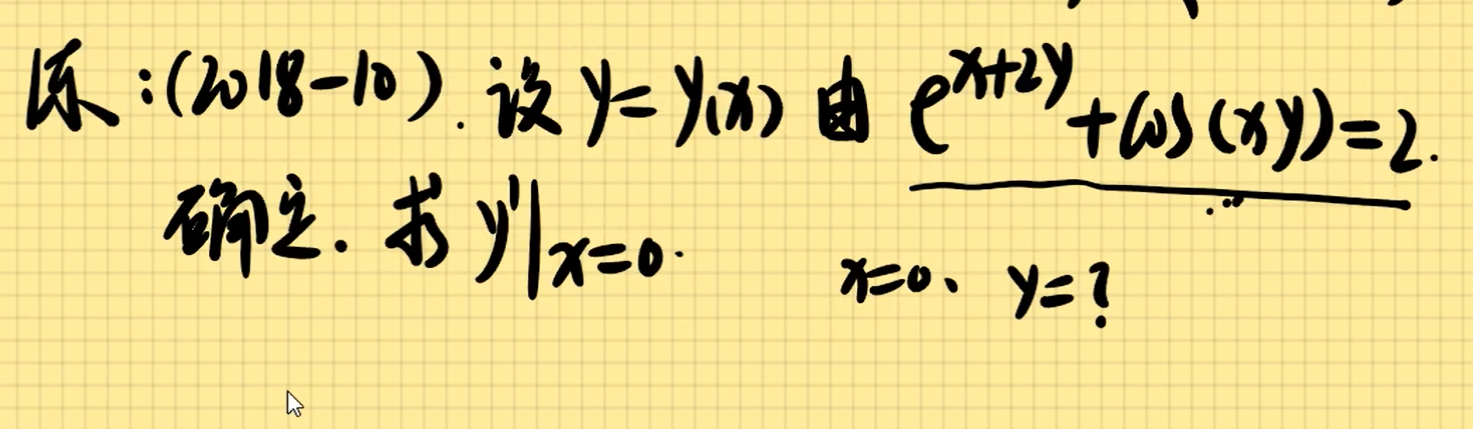 :(2018-10). 设 y=y(x) 由 e^{x+2y}+cos(xy)=2.
确定. 求 y'|x=0.
x=0、 y=?